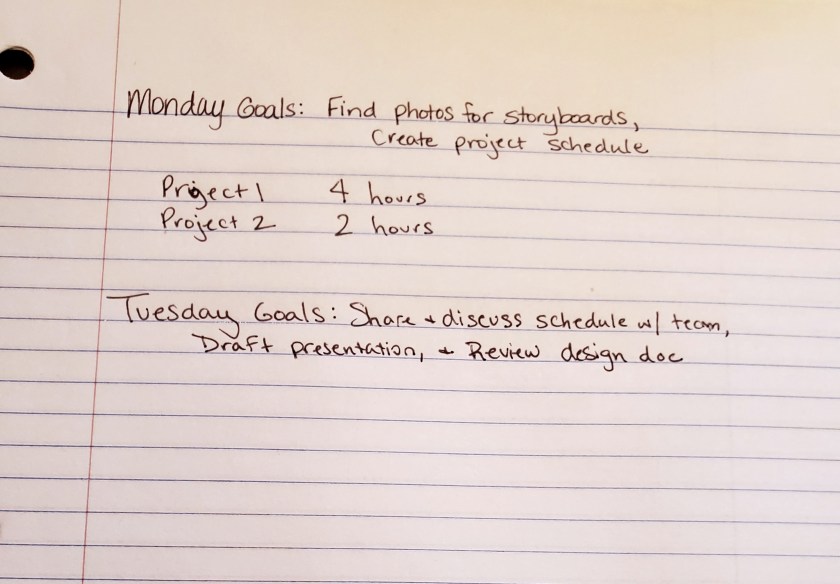 Monday Goals: Find photos for storyboards,
Create project schedule
Project 1 4 hours
Project 2 2 hours
Tuesday Goals: Share + discuss schedule w/ team,
Draft presentation, + Review design doc